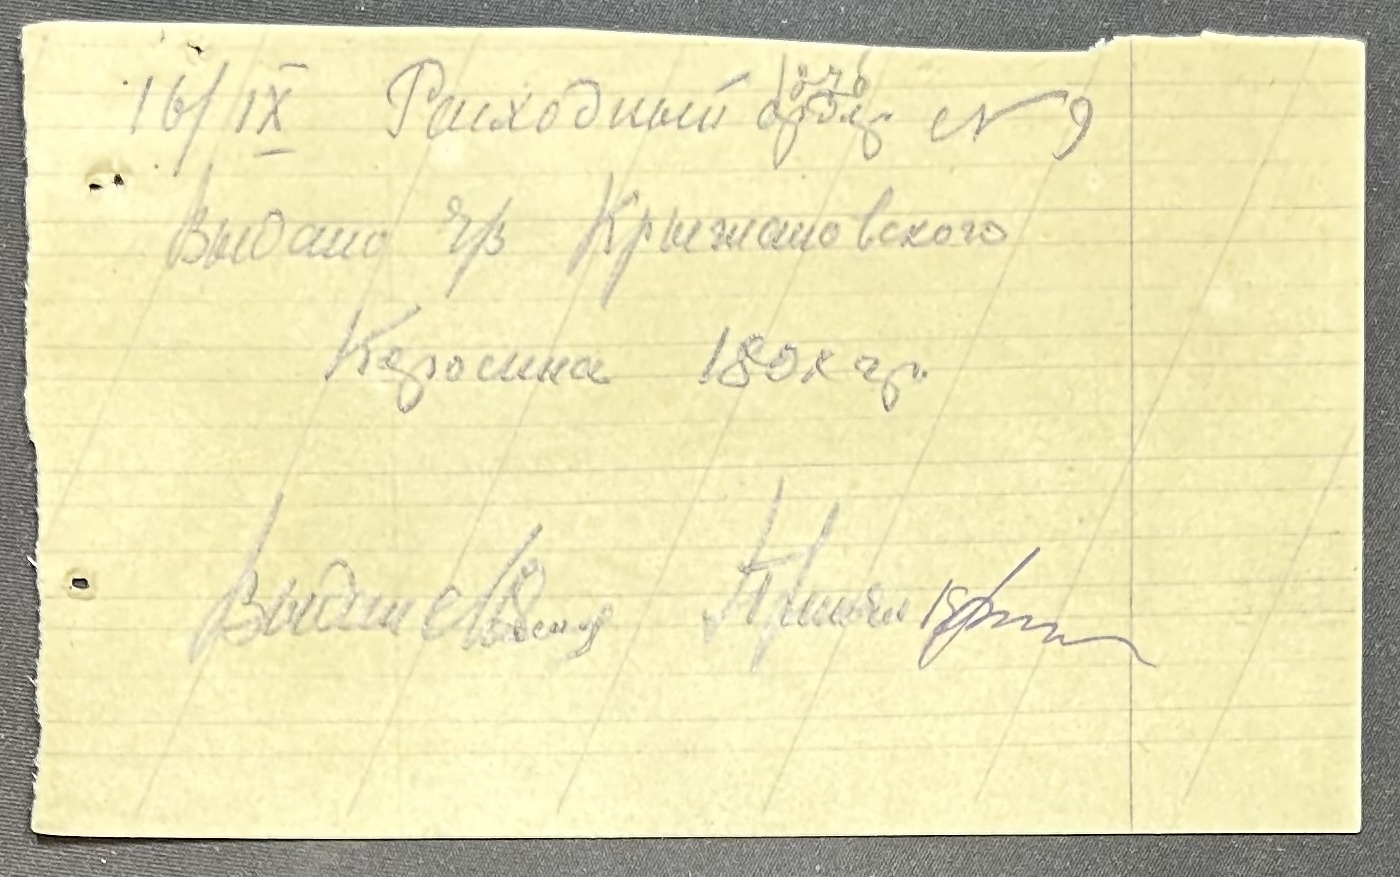 16/IX Расходный ордер № 9
Выдано ч/з Крыжановского
Керосина 180 кгр.
Выдал Принял